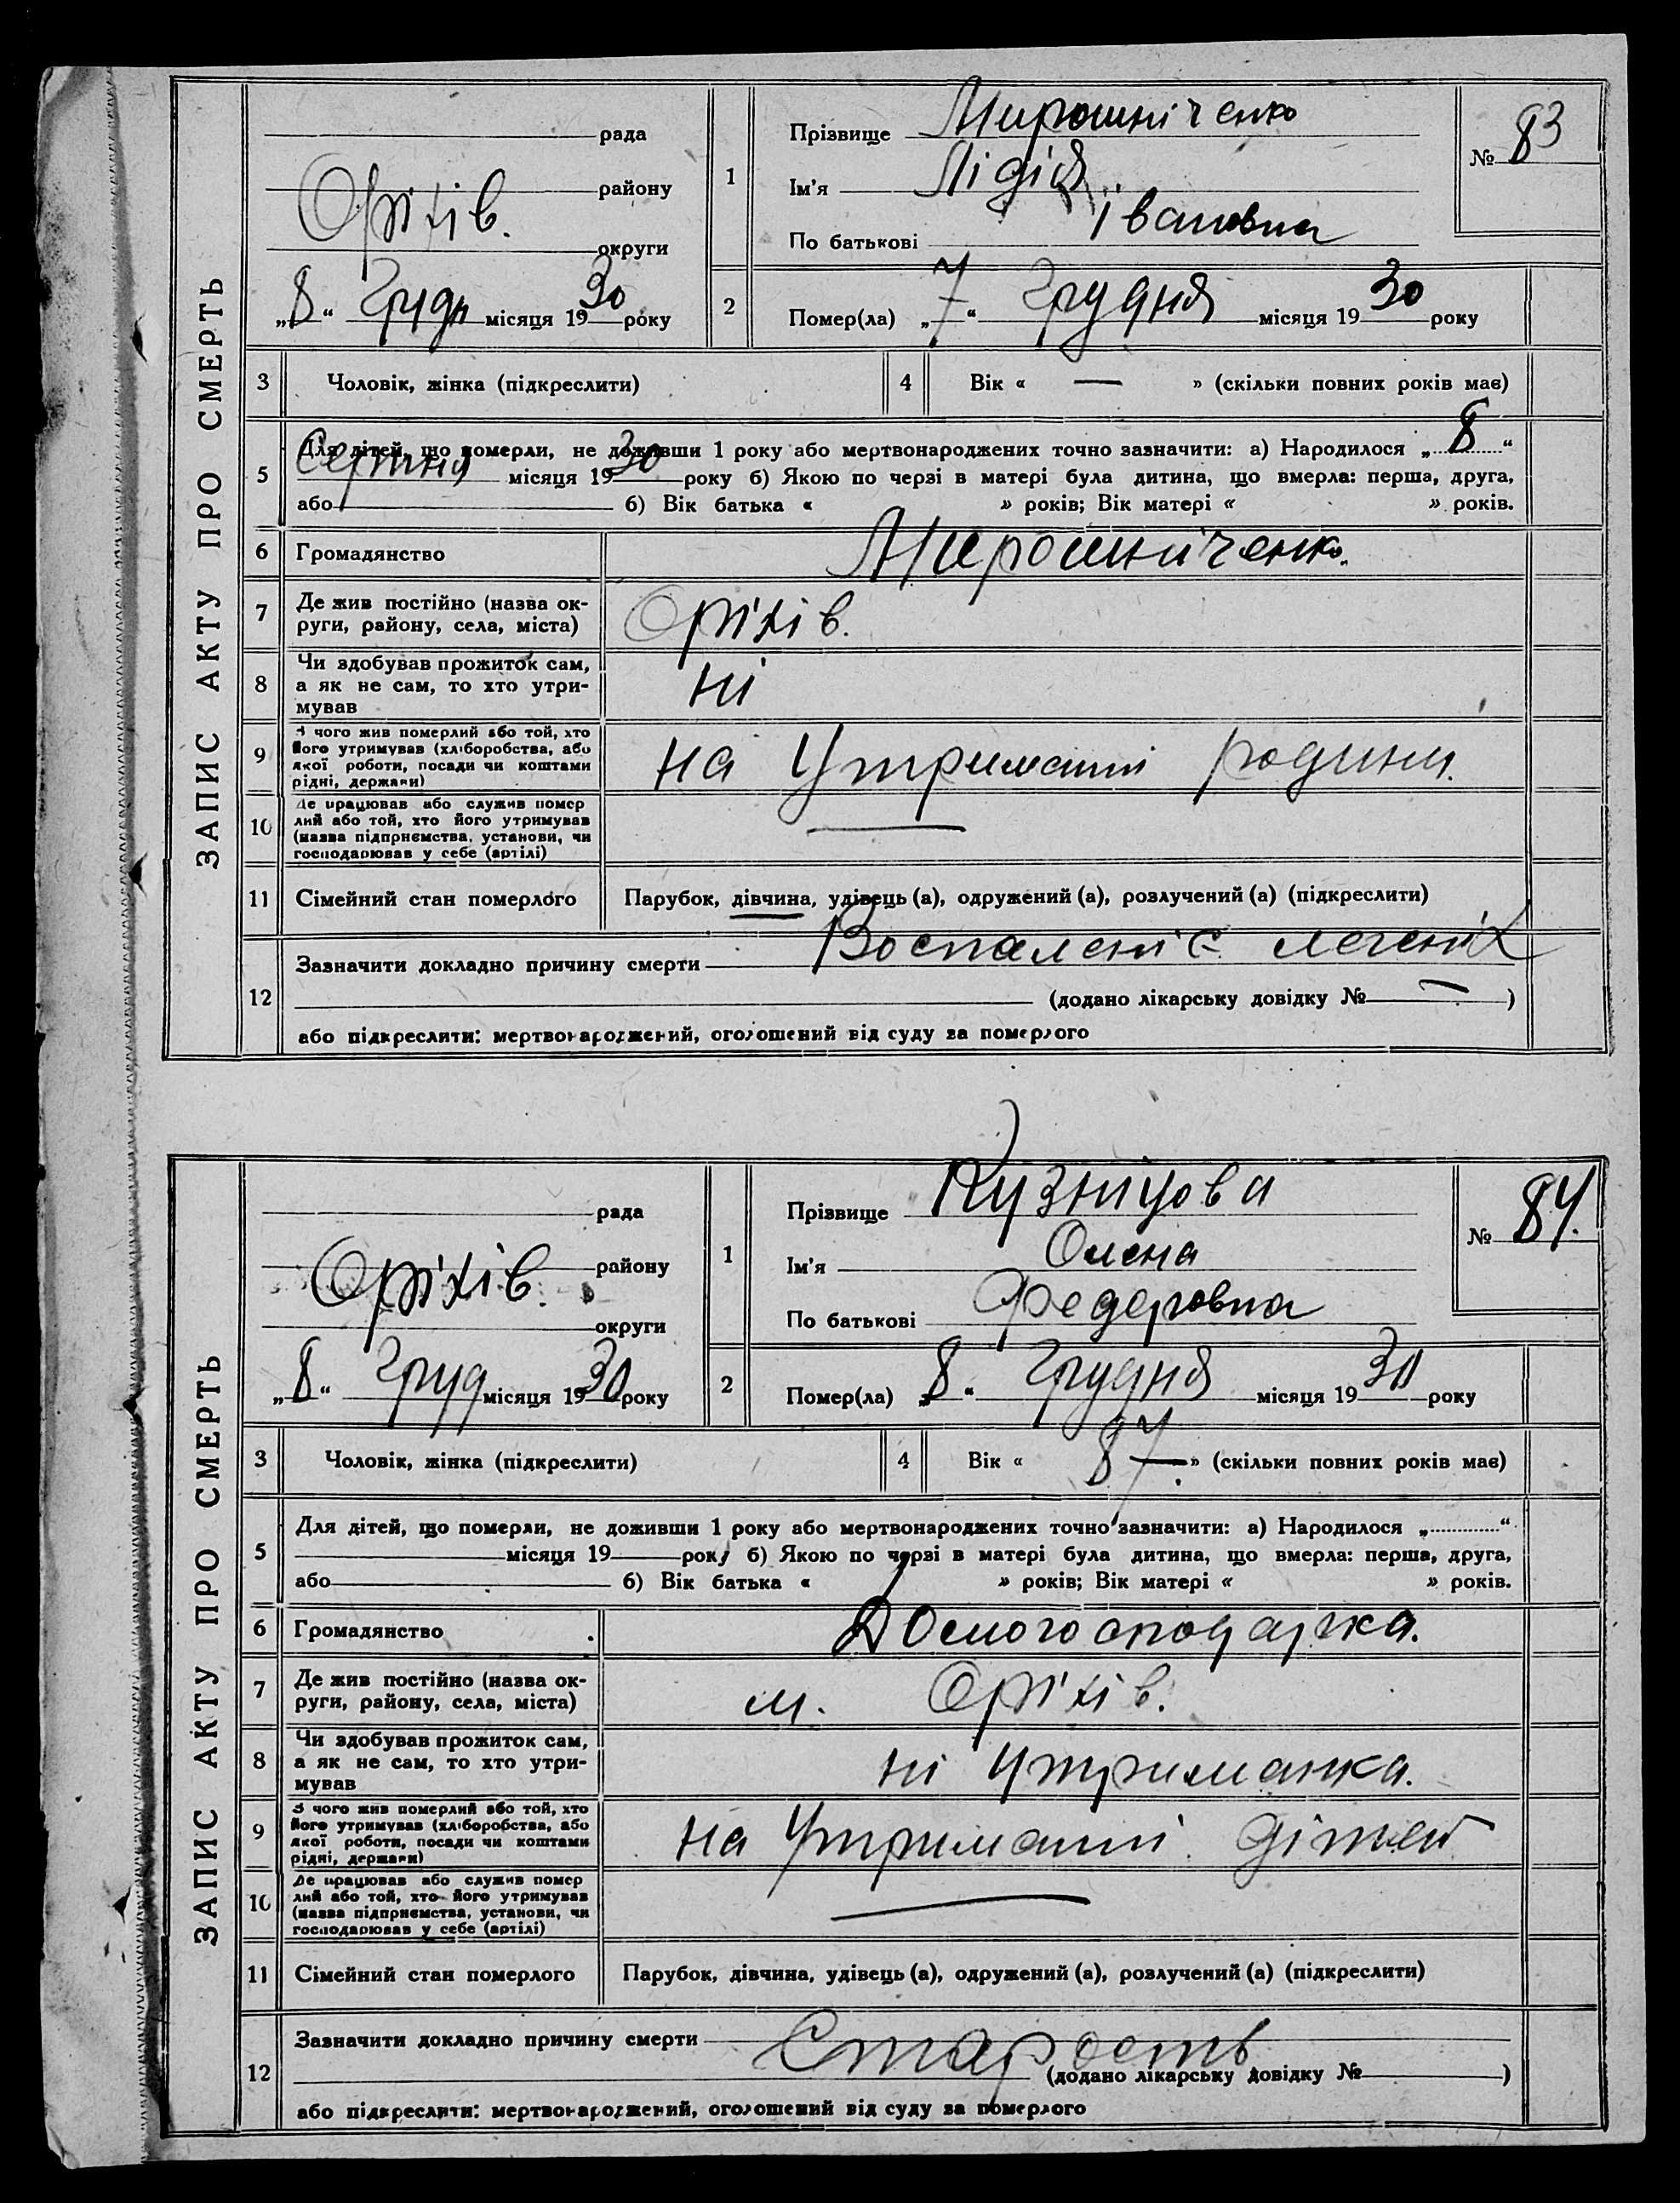 ЗАПИС АКТУ ПРО СМЕРТЬ
рада
району
Оріхів.
округи
„8“ Грудн місяця 1930 року
1
Прізвище Мирошніченко
Ім'я Лідія
По батькові Івановна
№ 83
2
Помер(ла) „7“ Грудня місяця 1930 року
3 Чоловік, жінка (підкреслити)
4 Вік « — » (скільки повних років має)
5
Для дітей, що померли, не доживши 1 року або мертвонароджених точно зазначити: а) Народилося „8“
Серпня місяця 1930 року б) Якою по черзі в матері була дитина, що вмерла: перша, друга,
або б) Вік батька « » років; Вік матері « » років.
6 Громадянство Мирошниченко.
7 Де жив постійно (назва ок-
руги, району, села, міста) Оріхів.
8 Чи здобував прожиток сам,
а як не сам, то хто утри-
мував ні
9 З чого жив померлий або той, хто
його утримував (хліборобства, або
якої роботи, посади чи коштами
рідні, держави) на Утриманні родини.
10 Де працював або служив помер
лий або той, хто його утримував
(назва підприємства, установи, чи
господарював у себе (артілі) —
11 Сімейний стан померлого Парубок, дівчина, удівець (а), одружений (а), розлучений (а) (підкреслити)
12
Зазначити докладно причину смерти Воспаленіє легеніх
(додано лікарську довідку № — )
або підкреслити: мертвонароджений, оголошений від суду за померлого
ЗАПИС АКТУ ПРО СМЕРТЬ
рада
району
Оріхів.
округи
„8“ Груд місяця 1930 року
1
Прізвище Кузніцова
Ім'я Олена
По батькові Федоровна
№ 84.
2
Помер(ла) „8“ Грудня місяця 1930 року
3 Чоловік, жінка (підкреслити)
4 Вік « 87. » (скільки повних років має)
5
Для дітей, що померли, не доживши 1 року або мертвонароджених точно зазначити: а) Народилося „ “
місяця 19 року б) Якою по черзі в матері була дитина, що вмерла: перша, друга,
або б) Вік батька « » років; Вік матері « » років.
6 Громадянство Домогосподарка.
7 Де жив постійно (назва ок-
руги, району, села, міста) м. Оріхів.
8 Чи здобував прожиток сам,
а як не сам, то хто утри-
мував ні Утриманка.
9 З чого жив померлий або той, хто
його утримував (хліборобства, або
якої роботи, посади чи коштами
рідні, держави) на Утриманні дітей
10 Де працював або служив помер
лий або той, хто його утримував
(назва підприємства, установи, чи
господарював у себе (артілі) —
11 Сімейний стан померлого Парубок, дівчина, удівець (а), одружений (а), розлучений (а) (підкреслити)
12
Зазначити докладно причину смерти Старость
(додано лікарську довідку № )
або підкреслити: мертвонароджений, оголошений від суду за померлого